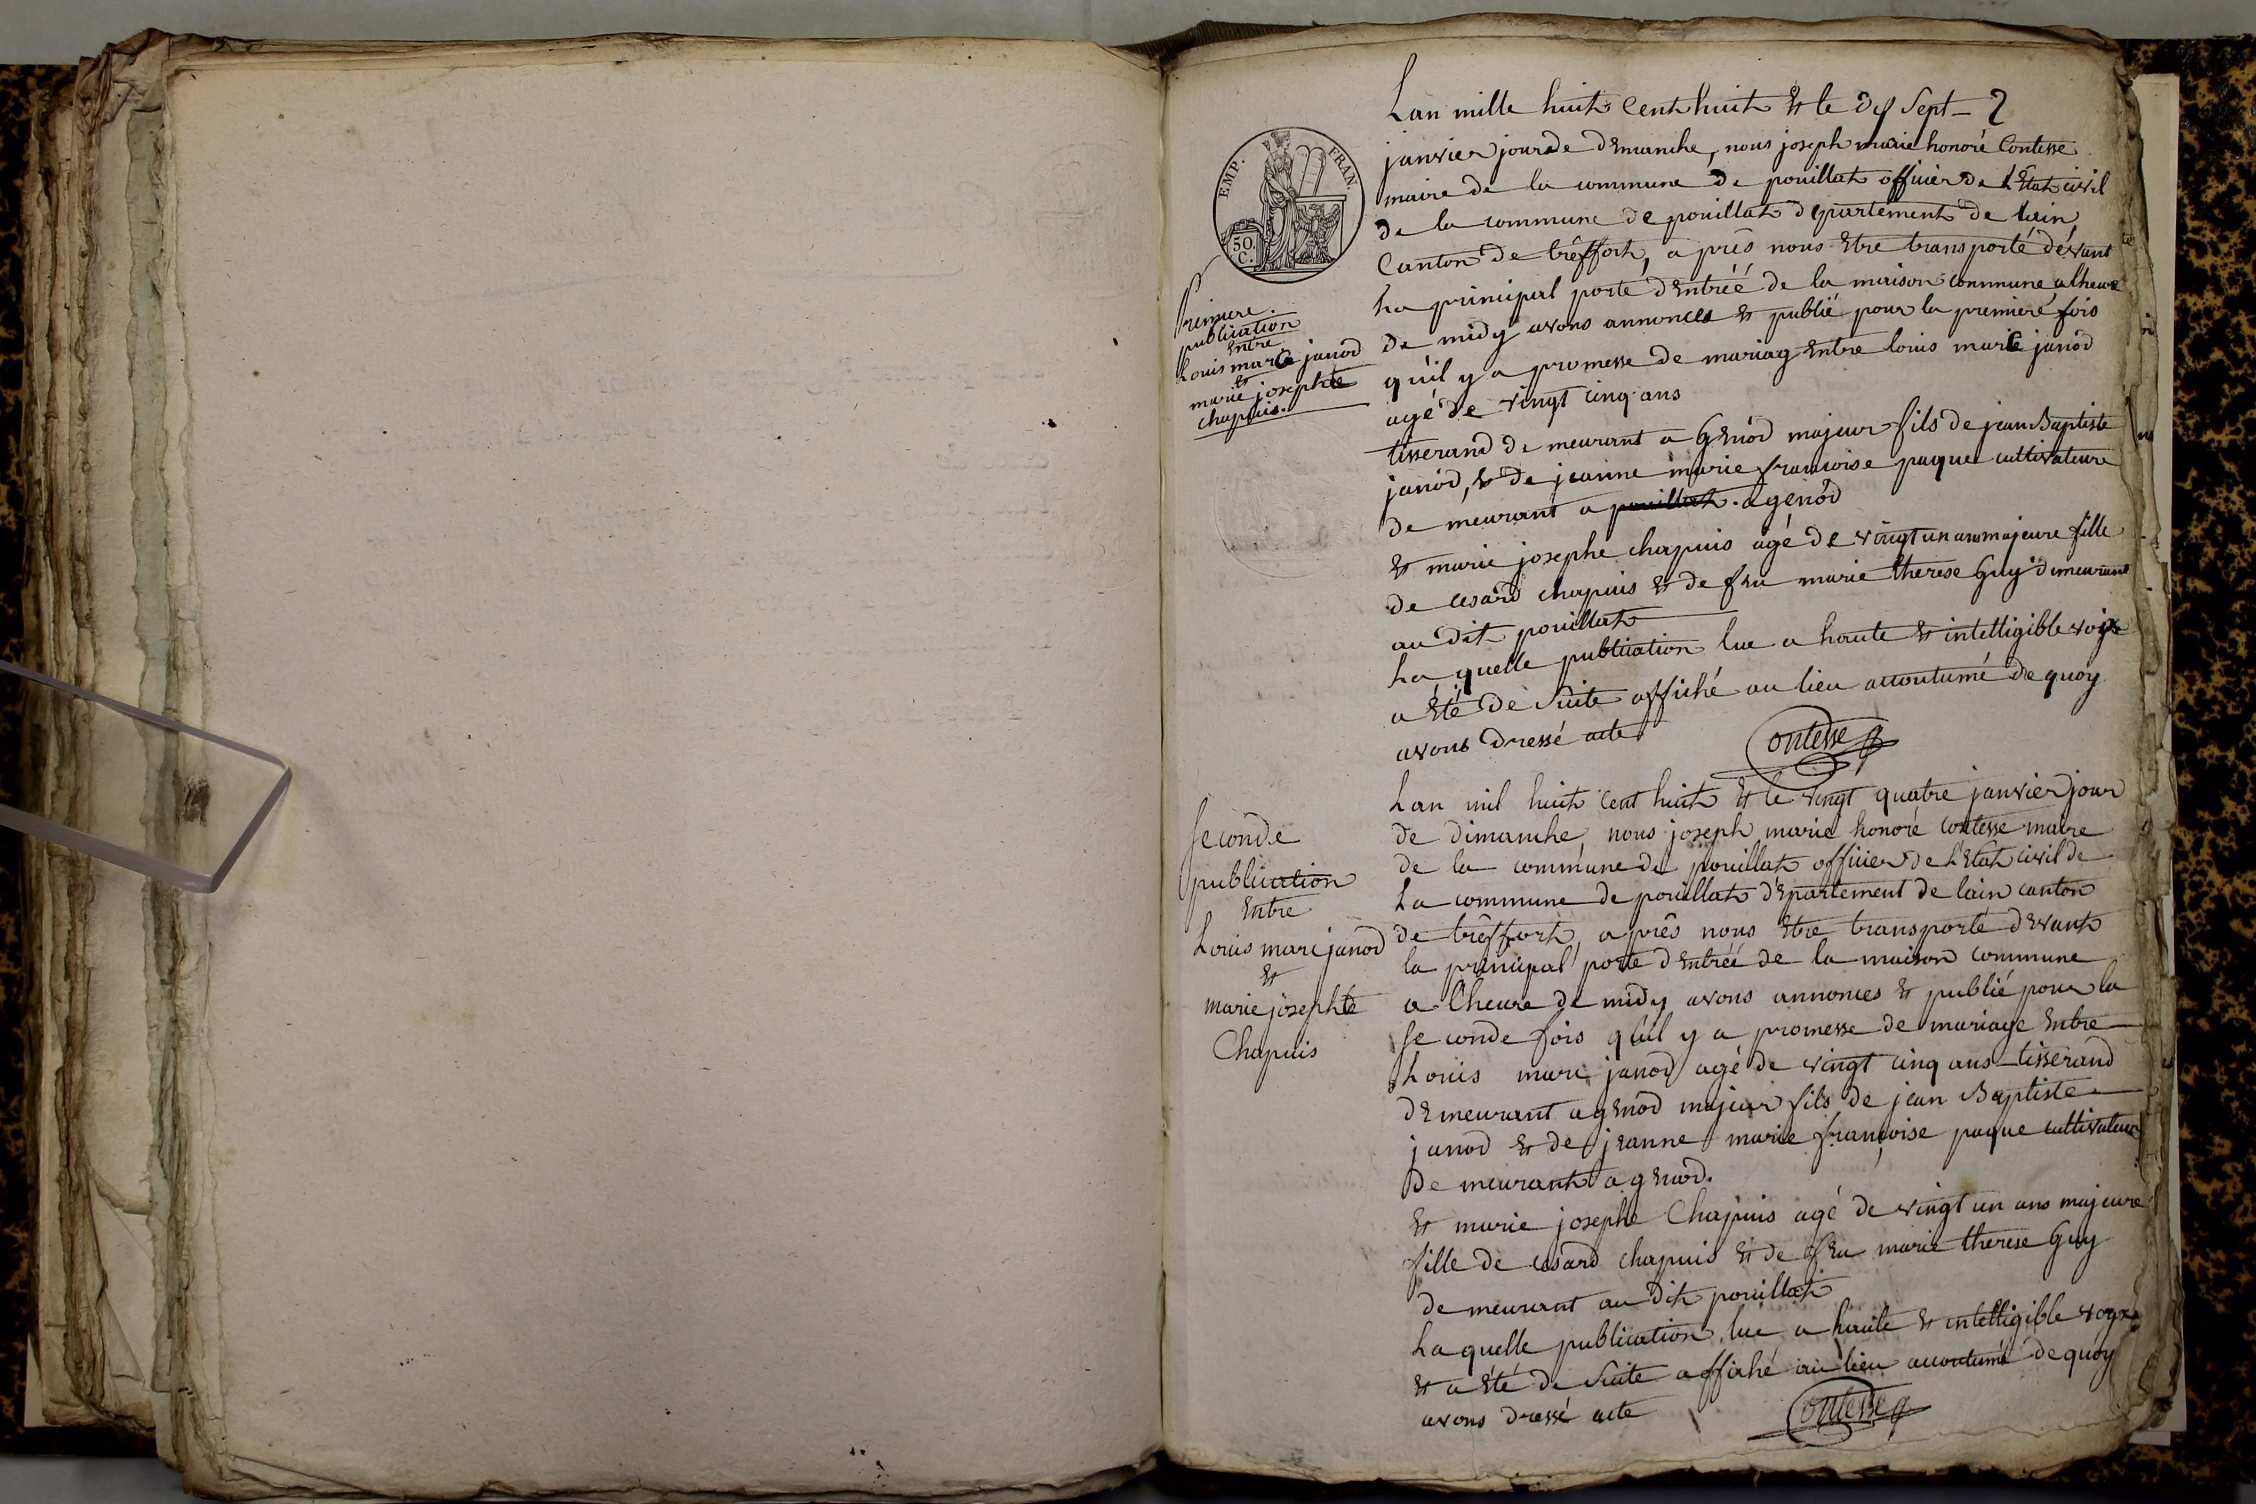 EMP. FRAN.
50.
C.
Premiere
publication
Entre
Louis marie janod
et
marie josephte
chapuis.
Lan mille huit Cent huit et le dix Sept
janvier jour de demanche, nous joseph marie honoré Contesse
maire de la commune de pouillat officier de l'Etat civil
de la commune de pouillat département de lain
Canton de tréffort, a prês nous Etre transporté dévant
La principal porte dentréé de la maison commune a lheure
de midy avons annonces et publié pour la premiere fois
qu'il y a promesse de mariag Entre louis marie janod
agé de vingt cinq ans
tisserand de meurant a Génod majeur fils de jean Baptiste
janod, et de jeanne marie francoise paque cultivateur
de meurant a pouillat . a génod
et marie josephe chapuis agé de vingt un ans majeure fille
de cesard chapuis et de feu marie therese Guy demeurant
au dit pouillat
La quelle publication lue a haute et intelligible voix
a été de Suite affiché au lieu accoutumé de quoy
avons dressé acte
Contesse
Seconde
publication
Entre
Louis mari janod
et
marie josephte
Chapuis
Lan mil huit cent huit et le vingt quatre janvier jour
de dimanche, nous joseph marie honoré contesse maire
de la commune de pouillat officier de l'Etat civil de
La commune de pouillat département de lain canton
de trêffort, a prês nous Etre transporté devant
la principal porte dentréé de la maison commune
a l'heure de midy avons annonces et publié pour la
Se conde fois qu'il y a promesse de mariage Entre
Louis mari janod agé de vingt cinq ans tisserand
demeurant a génod majeur fils de jean Baptiste
janod et de jeanne marie françoise paque cultivateur
de meurant a génod.
et marie josephe Chapuis agé de vingt un ans majeure
fille de cesard chapuis et de feu marie therese Guy
de meurant au dit pouillat
La quelle publication lue a haute et intelligible voyx
et a été de Suite affiché au lieu accoutumé de quoy
avons dressé acte
Contesse